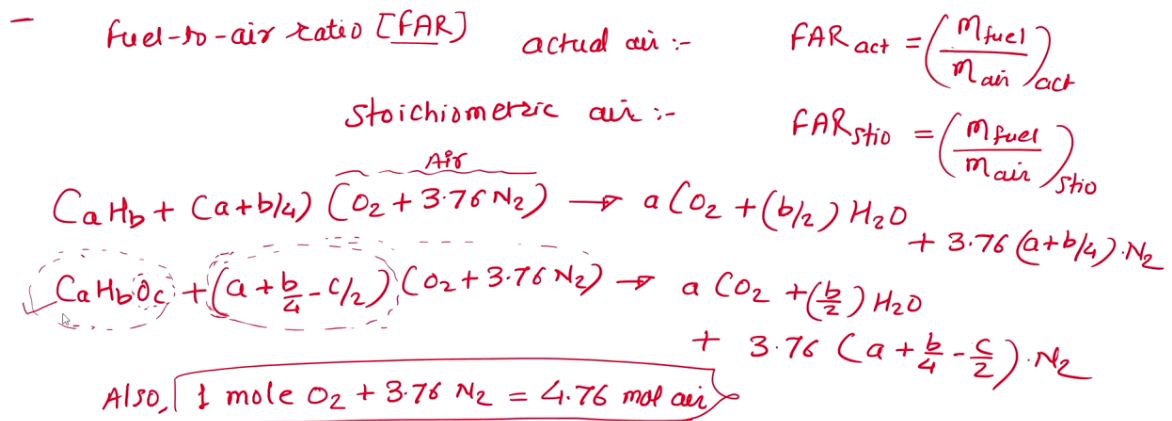 – Fuel-to-air ratio [FAR] actual air :- FAR act = (m fuel / m air) act
Stoichiometric air :- FAR stio = (m fuel / m air) stio
Air
CaHb + (a+b/4) (O2 + 3.76 N2) → a CO2 + (b/2) H2O
+ 3.76 (a+b/4)·N2
CaHbOc + (a + b/4 - c/2) (O2 + 3.76 N2) → a CO2 + (b/2) H2O
+ 3.76 (a + b/4 - c/2)·N2
Also, 1 mole O2 + 3.76 N2 = 4.76 mol air